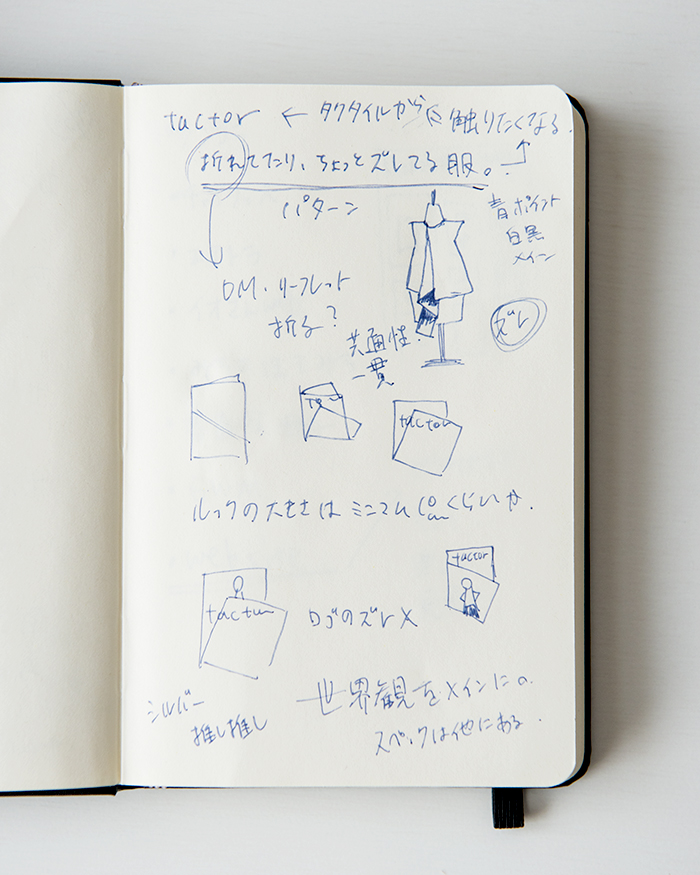 tactor ← タクタイルから 触りたくなる.
折れてたり、ちょっとズレてる服。
パターン
青ポイント
白黒
メイン
DM・リーフレット
折る?
ズレ
共通性.
一貫
tactor
ルックの大きさはミニマム くらいか.
tactor
tactor
ロゴのズレ×
シルバー
推し推し
世界観をメインにの.
スペックは他にある.